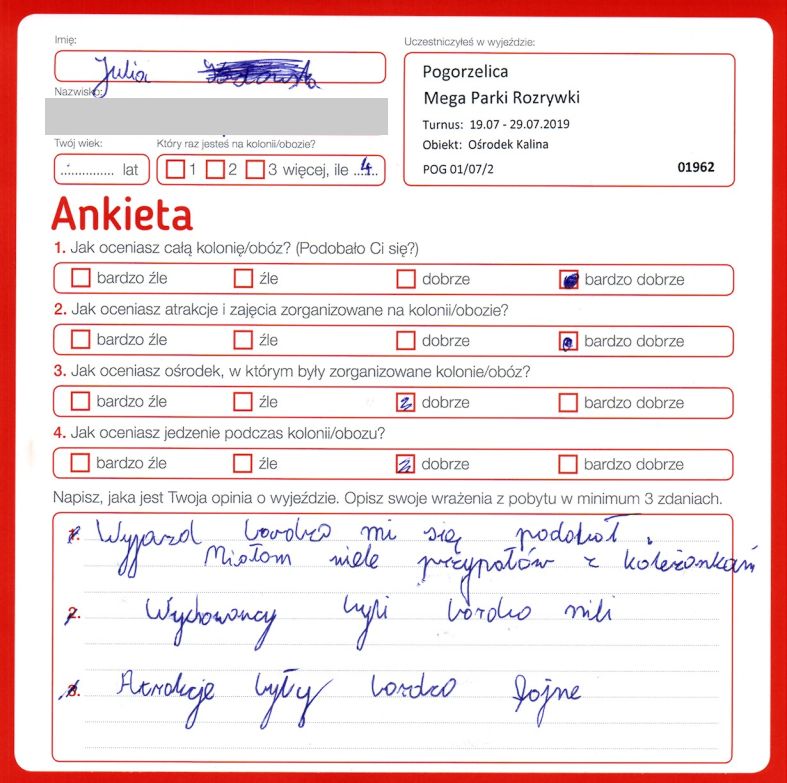 Imię:
Julia
Nazwisko:
Twój wiek:
............... lat
Który raz jesteś na kolonii/obozie?
1 2 3 więcej, ile 4
Uczestniczyłeś w wyjeździe:
Pogorzelica
Mega Parki Rozrywki
Turnus: 19.07 - 29.07.2019
Obiekt: Ośrodek Kalina
POG 01/07/2 01962
Ankieta
1. Jak oceniasz całą kolonię/obóz? (Podobało Ci się?)
bardzo źle źle dobrze bardzo dobrze
2. Jak oceniasz atrakcje i zajęcia zorganizowane na kolonii/obozie?
bardzo źle źle dobrze bardzo dobrze
3. Jak oceniasz ośrodek, w którym były zorganizowane kolonie/obóz?
bardzo źle źle dobrze bardzo dobrze
4. Jak oceniasz jedzenie podczas kolonii/obozu?
bardzo źle źle dobrze bardzo dobrze
Napisz, jaka jest Twoja opinia o wyjeździe. Opisz swoje wrażenia z pobytu w minimum 3 zdaniach.
1. Wyjazd bardzo mi się podobał.
Miałam wiele przypałów z koleżankami
2. Wychowawcy byli bardzo mili
3. Atrakcje były bardzo fajne